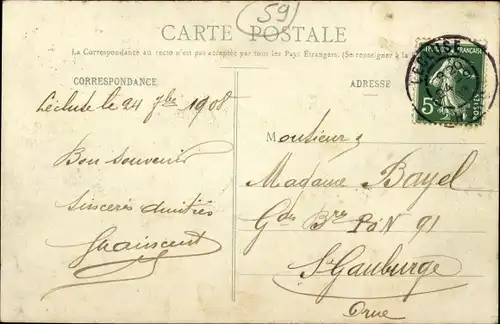 59
CARTE POSTALE
La Correspondance au recto n'est pas acceptée par tous les Pays Étrangers. (Se renseigner à la
CORRESPONDANCE
ADRESSE
Lécluse le 24 7bre 1908
Bon souvenir
sincères amitiés
FRANÇAISE
5c
Monsieur &
Madame Bayel
Gde Bre P.O.N 91
Ste Gauburge
Orne